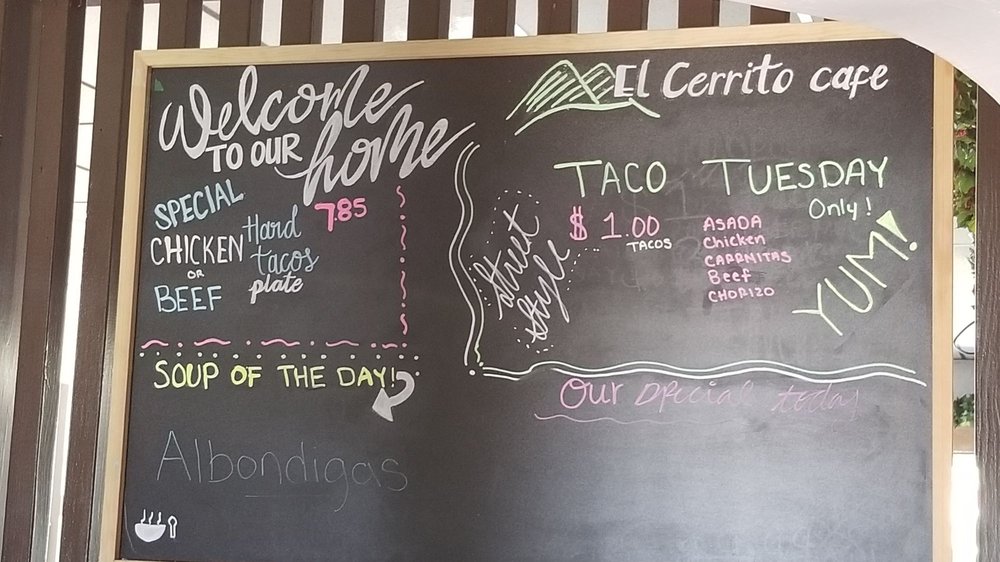 Welcome
TO OUR home
SPECIAL
CHICKEN
OR
BEEF
Hard
tacos
plate
7.85
SOUP OF THE DAY!
Albondigas
El Cerrito cafe
TACO TUESDAY
Only!
Street
Style
$1.00
TACOS
ASADA
Chicken
CARNITAS
Beef
CHORIZO
YUM!
Our special today